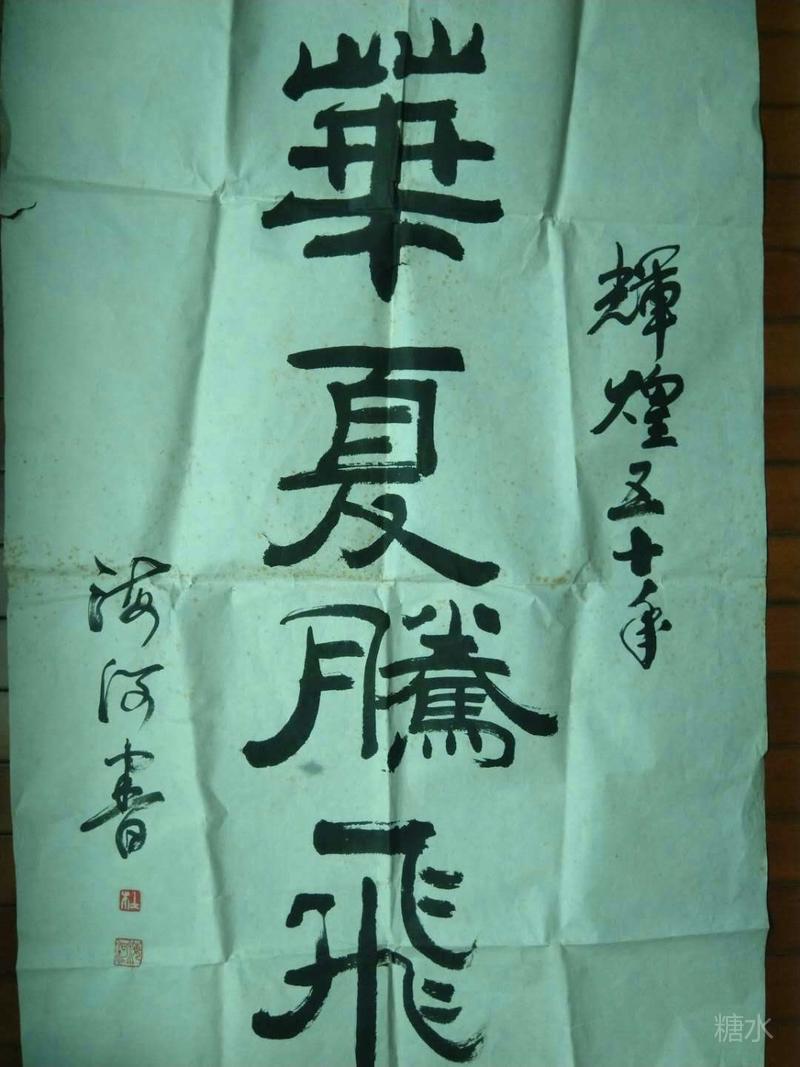 輝煌五十年
華夏騰飛
海河書
杜
海河
糖水